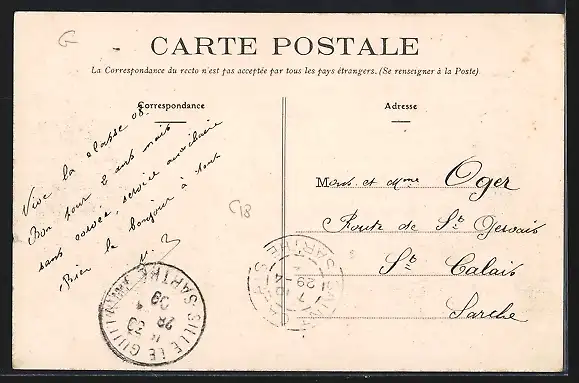 CARTE POSTALE
La Correspondance du recto n'est pas acceptée par tous les pays étrangers. (Se renseigner à la Poste)
Correspondance
Vive la classe 08.
Bon pour 2 ans mais
sans corvée, service auxiliaire
Bien le bonjour à tout
Adresse
Mons. et Mme Oger
Route de St Gervais
St Calais
Sarthe
SILLE LE GUILLAUME
SARTHE